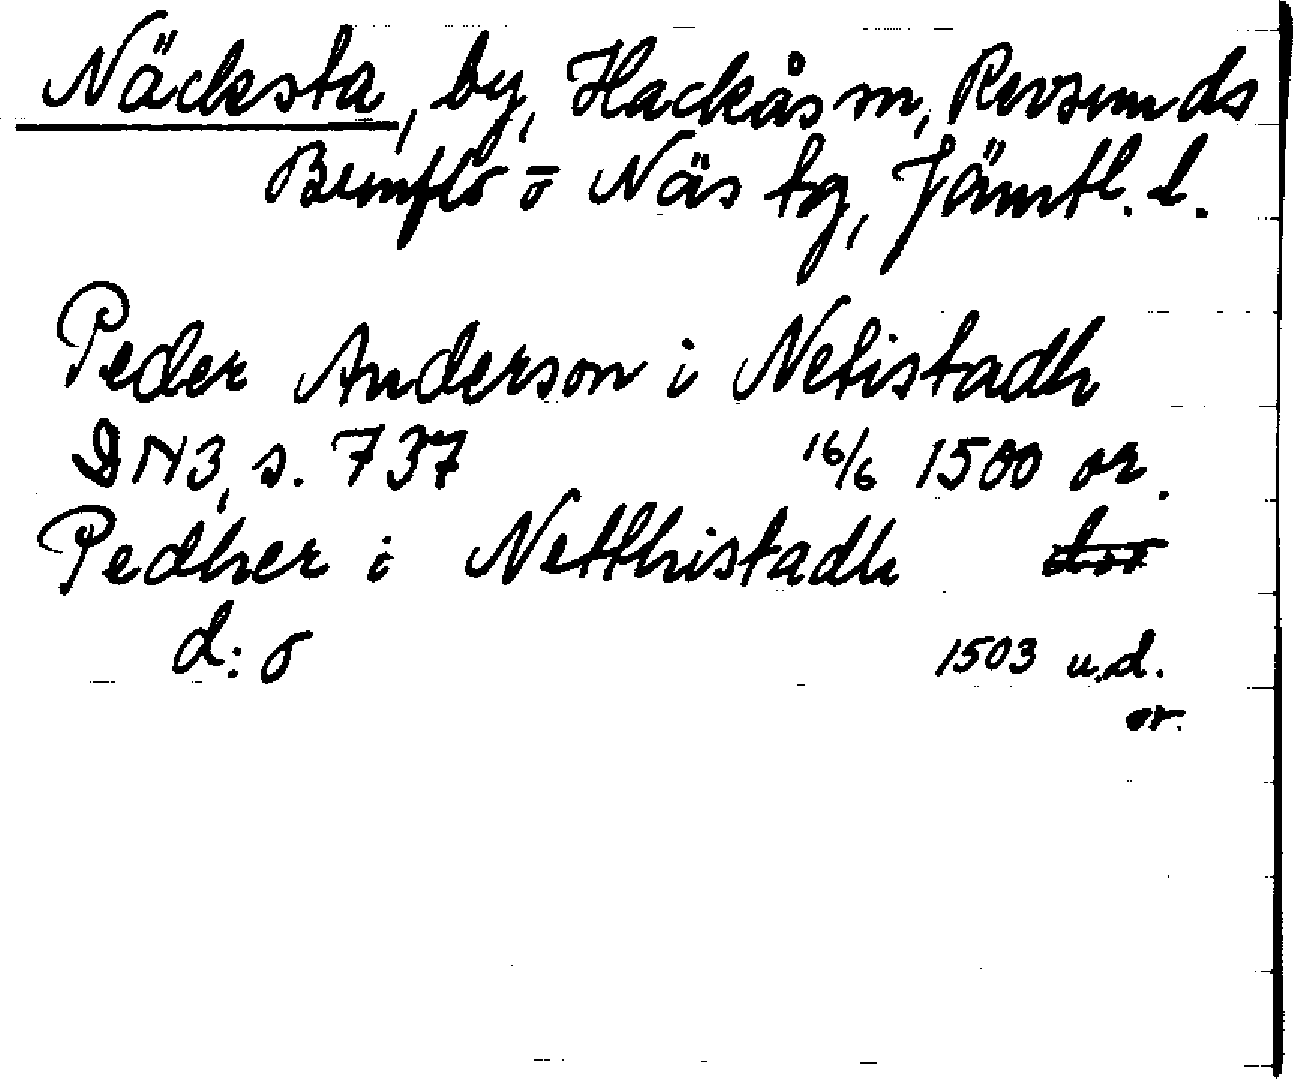 Näcksta, by, Hackås sn, Revsunds
Brunflo o Näs tg, Jämtl. l.
Peder Anderson i Netistadh
DN3, s. 737 16/6 1500 or.
Pedher i Netthistadh
d:o 1503 u.d.
or.